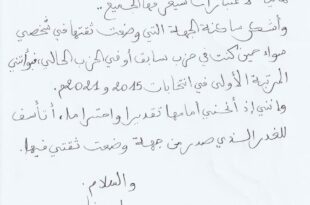 اعتبارات سيعرفها الجميع..
وأشكر ساكنة الجهة التي وضعت ثقتها في شخصي
سواء حين كنت في حزب سابق أو في الحزب الحالي، فبوأتني
المرتبة الأولى في انتخابات 2015 و 2021م.
وإنني إذ أنحني أمامها تقديرا واحتراما، أتأسف
للغدر الذي صدر من جهة وضعت ثقتي فيها.
والسلام.